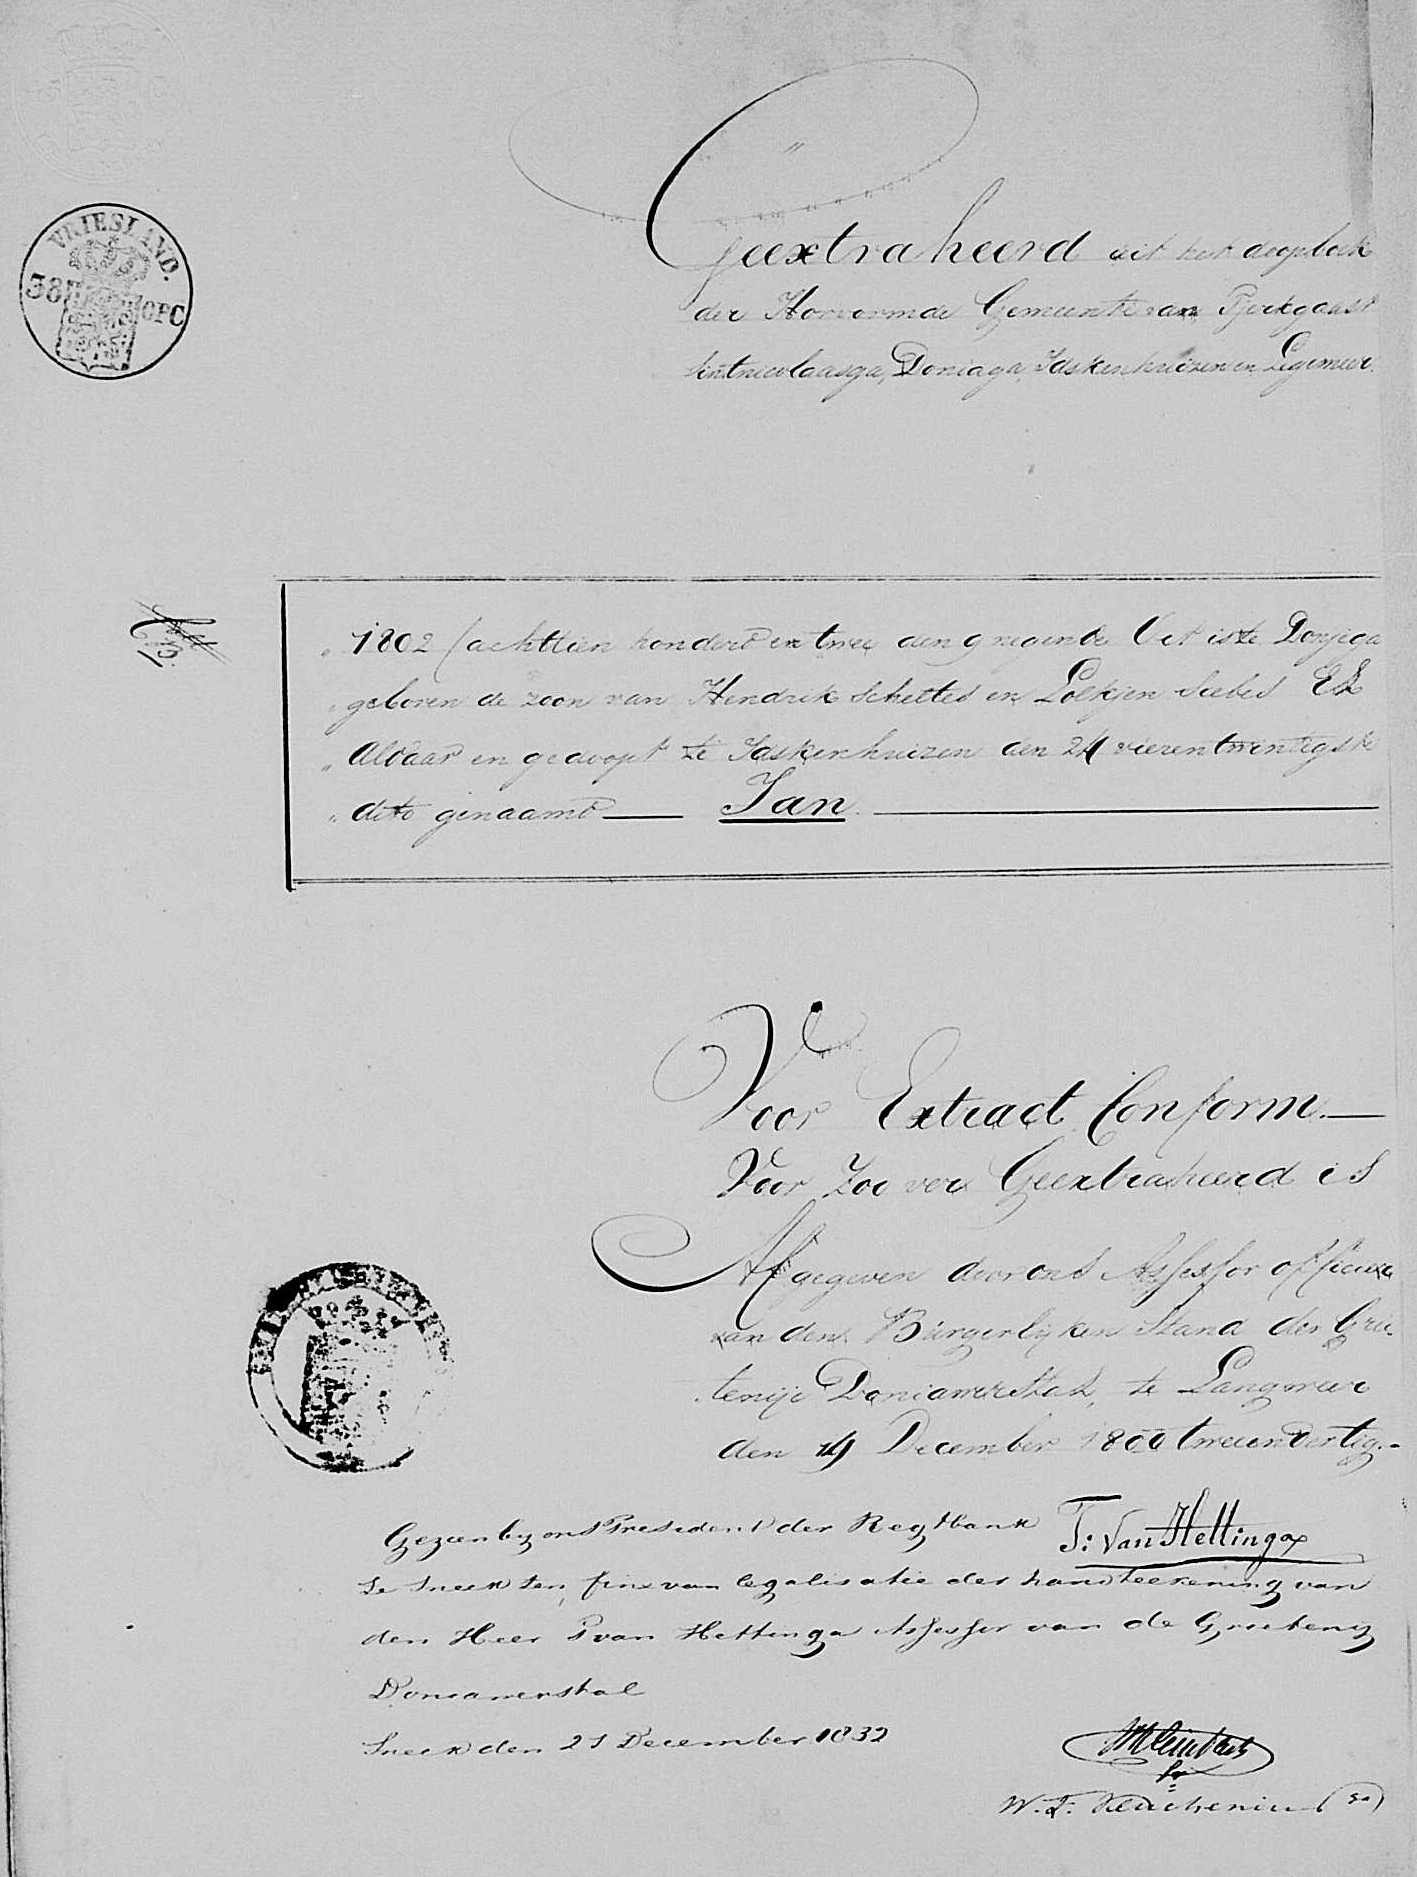 VRIESLAND.
38 OPC
Geextraheerd uit het doopboek
der Hervormde Gemeente van Tjerkgaast
Sintnicolaasga, Doniaga, Idskenhuizen en Legemeer.
1802 (achttien honderd en twee den 9 negende Oct is te Donjiga
geboren de zoon van Hendrik Scheltes en Loekjen Siebes
Aldaar en gedoopt te Idskenhuizen den 24 vierentwintigste
dito genaamd Jan.
Voor Extract Conform.
Voor Zoo ver Geextraheerd is
Afgegeven door ons Assessor officier
van den Burgerlijken Stand der Grie-
tenije Doniawerstal, te Langweer
den 19 December 1800 tweeendertig.-
T: Van Hettinga
Gezien by ons President der Regtbank
te Sneek ten fine van legalisatie der handteekening van
den Heer T van Hettinga Assessor van de Grieteny
Doniawerstal
Sneek den 21 December 1832